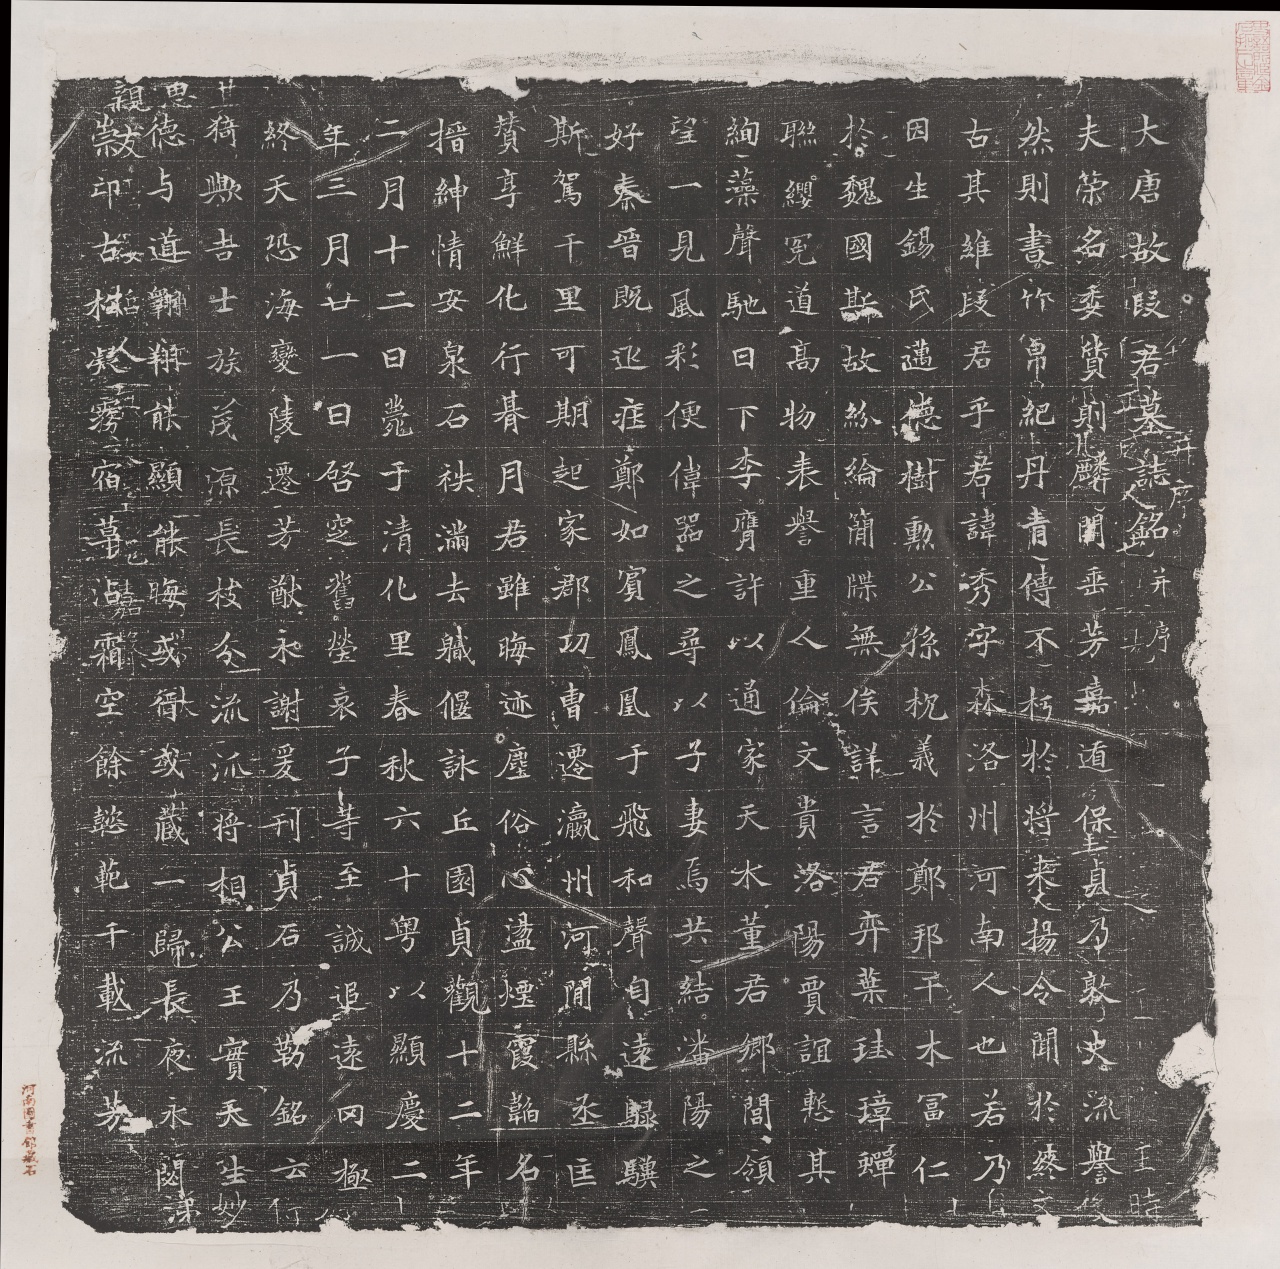 大唐故段君墓誌銘并序
夫榮名委質則麟閣垂芳嘉遁保貞乃敦史流譽
然則書竹帛紀丹青傳不朽於將來揚令聞於終
古其維段君乎君諱秀字森洛州河南人也若乃
因生錫氏邁德樹勳公孫枕義於鄭邦干木冨仁
於魏國斯故紛綸簡牒無俟詳言君弈葉珪璋蟬
聯纓冕道高物表譽重人倫文貴洛陽賈誼慙其
絢藻聲馳日下李膺許以通家天水董君鄉閭領
望一見風彩便偉器之尋以子妻焉共結潘陽之
好秦晉既迩疰鄭如賓鳳凰于飛和聲自遠騄驥
斯駕千里可期起家郡功曹遷瀛州河閒縣丞匡
賛享鮮化行朞月君雖晦迹塵俗心盪煙霞韜名
搢紳情安泉石秩滿去職偃詠丘園貞觀十二年
二月十二日薨于清化里春秋六十粤以顯慶二
年三月廿一日啓窆舊塋哀子等至誠追遠冈極
終天恐海變陵遷芳猷永謝爰刊貞石乃勒銘云
猗歟吉士族茂源長枝分流泒將相公王實天生
德与道翺翔能顯能晦或衙或藏一歸長夜永閟
崇卬古松凝霧宿草沾霜空餘懿範千載流芳
河南圖書館藏石